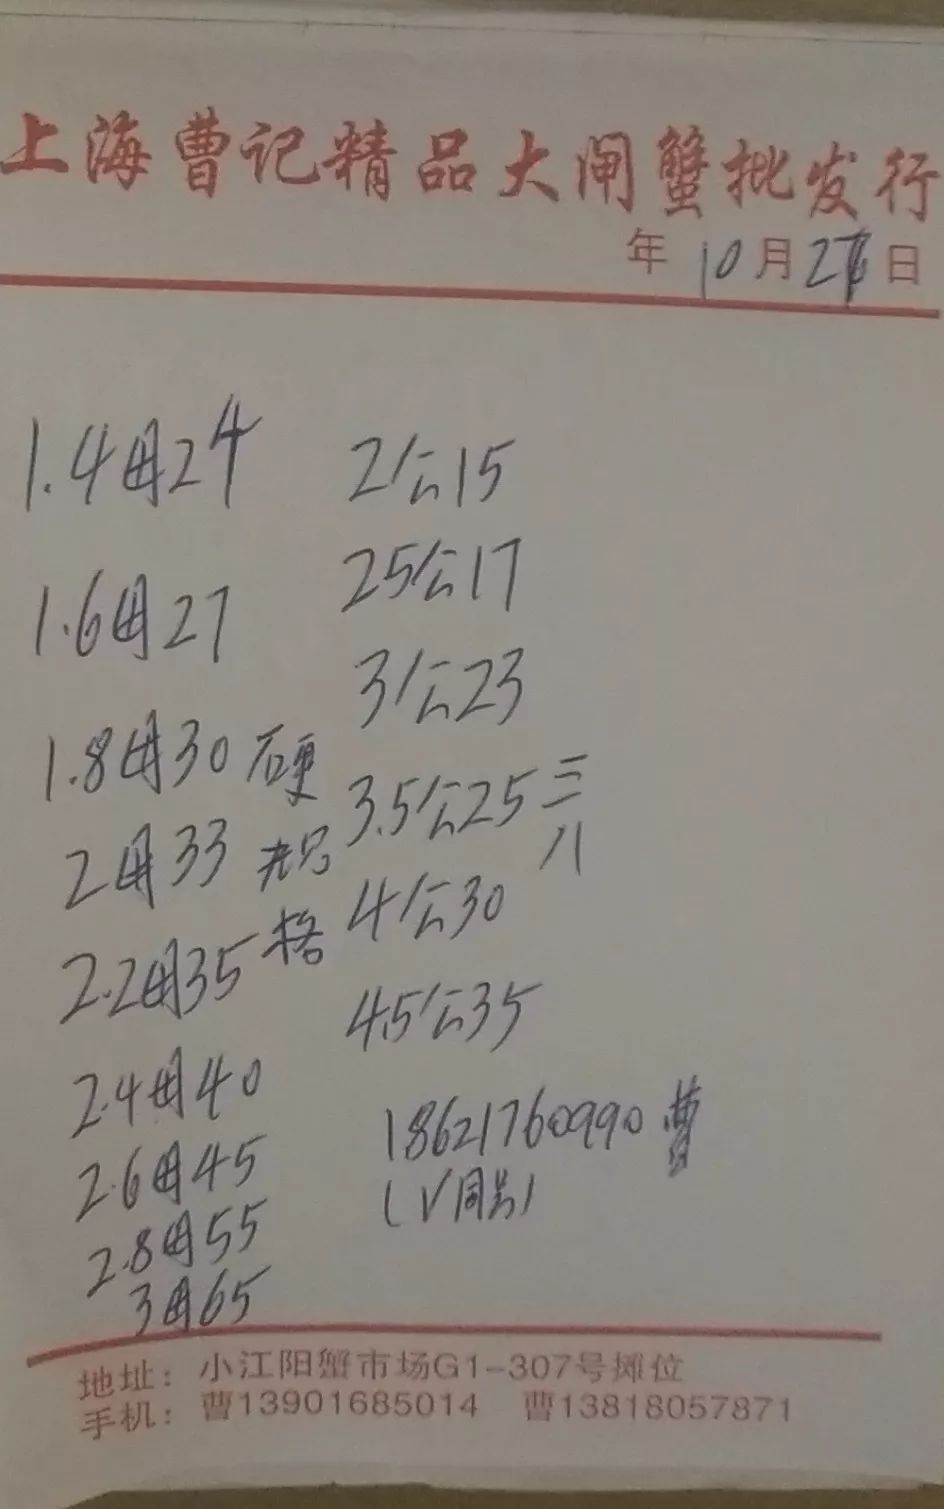 上海曹记精品大闸蟹批发行
年 10月2 日
1.4母24
1.6母27
1.8母30 硬
2母33 壳
2.2母35 格
2.4母40
2.6母45
2.8母55
3母65
2公15
25公17
3公23
3.5公25 三
八
4公30
4.5公35
18621760990 曹
(V同号)
地址：小江阳蟹市场G1-307号摊位
手机：曹13901685014 曹13818057871